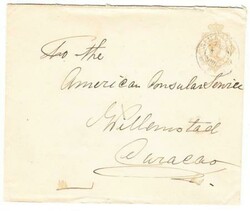 To the
American Consular Service
Willemstad
Curacao